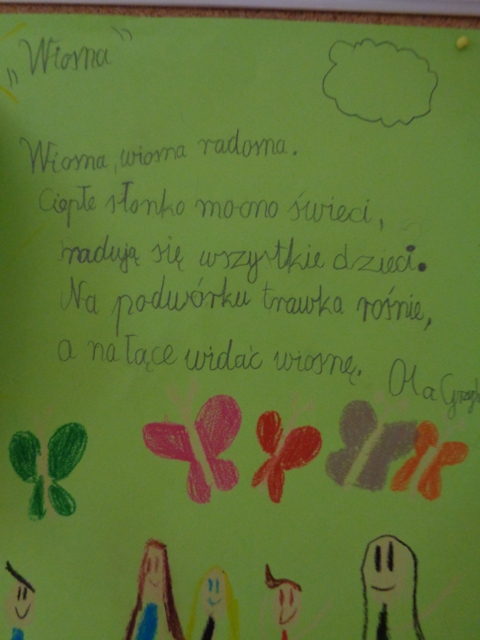 „Wiosna”
Wiosna, wiosna radosna.
Ciepłe słonko mocno świeci,
radują się wszystkie dzieci.
Na podwórku trawka rośnie,
a na łące widać wiosnę. Ola